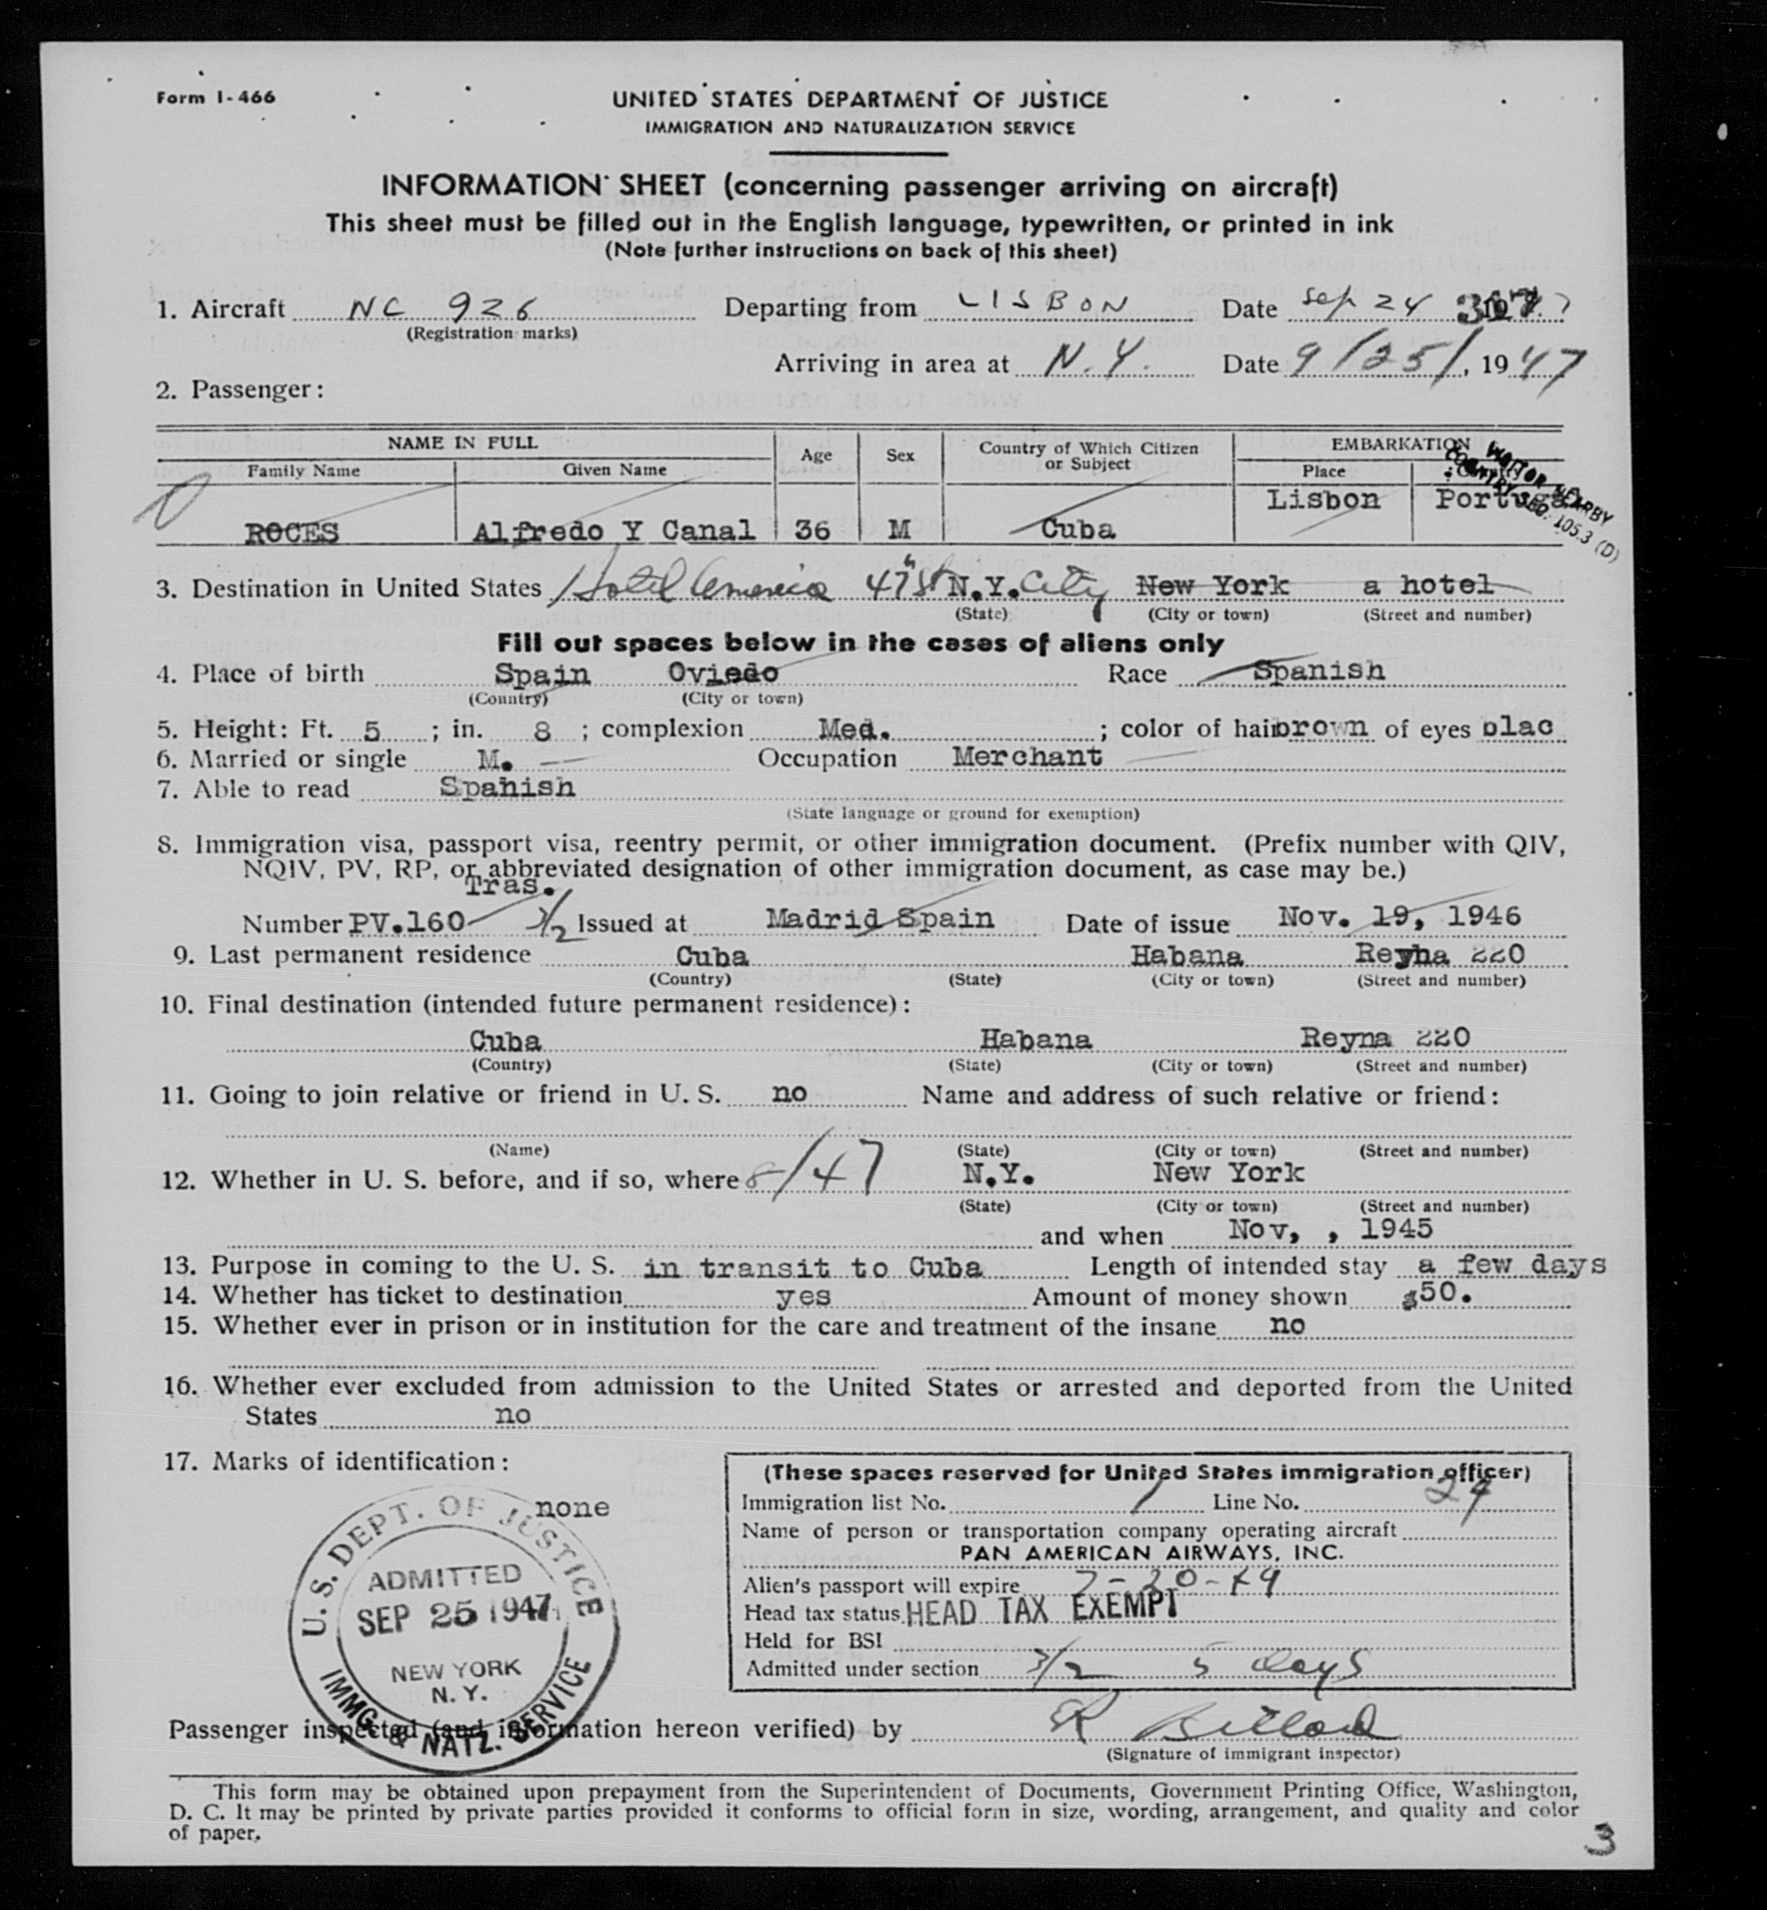 Form I-466
UNITED STATES DEPARTMENT OF JUSTICE
IMMIGRATION AND NATURALIZATION SERVICE
INFORMATION SHEET (concerning passenger arriving on aircraft)
This sheet must be filled out in the English language, typewritten, or printed in ink
(Note further instructions on back of this sheet)
1. Aircraft NC 926 Departing from LISBON Date Sep 24
(Registration marks)
Arriving in area at N.Y. Date 9/25/, 1947
2. Passenger:
NAME IN FULL Age Sex Country of Which Citizen or Subject EMBARKATION
Family Name Given Name Place
VISITOR NEARBY
COUNTRY SEC. 105.3 (D)
Lisbon
ROCES Alfredo Y Canal 36 M Cuba
3. Destination in United States Hotel America 47 St N.Y. City New York a hotel
(State) (City or town) (Street and number)
Fill out spaces below in the cases of aliens only
4. Place of birth Spain Oviedo Race Spanish
(Country) (City or town)
5. Height: Ft. 5 ; in. 8 ; complexion Med. ; color of hair brown of eyes blac
6. Married or single M. Occupation Merchant
7. Able to read Spanish
(State language or ground for exemption)
8. Immigration visa, passport visa, reentry permit, or other immigration document. (Prefix number with QIV,
NQIV, PV, RP, or abbreviated designation of other immigration document, as case may be.)
Tras.
Number PV.160 3/2 Issued at Madrid Spain Date of issue Nov. 19, 1946
9. Last permanent residence Cuba Habana Reyna 220
(Country) (State) (City or town) (Street and number)
10. Final destination (intended future permanent residence):
Cuba Habana Reyna 220
(Country) (State) (City or town) (Street and number)
11. Going to join relative or friend in U. S. no Name and address of such relative or friend:
(Name) (State) (City or town) (Street and number)
12. Whether in U. S. before, and if so, where 8/47 N.Y. New York
(State) (City or town) (Street and number)
and when Nov, , 1945
13. Purpose in coming to the U. S. in transit to Cuba Length of intended stay a few days
14. Whether has ticket to destination yes Amount of money shown $50.
15. Whether ever in prison or in institution for the care and treatment of the insane no
16. Whether ever excluded from admission to the United States or arrested and deported from the United
States no
17. Marks of identification:
none
U. S. DEPT. OF JUSTICE
ADMITTED
SEP 25 1947
NEW YORK
N. Y.
IMMG. & NATZ. SERVICE
(These spaces reserved for United States immigration officer)
Immigration list No. 1 Line No. 29
Name of person or transportation company operating aircraft
PAN AMERICAN AIRWAYS, INC.
Alien's passport will expire 7-20-49
Head tax status HEAD TAX EXEMPT
Held for BSI
Admitted under section 3/2 5 days
Passenger inspected (and information hereon verified) by
(Signature of immigrant inspector)
This form may be obtained upon prepayment from the Superintendent of Documents, Government Printing Office, Washington,
D. C. It may be printed by private parties provided it conforms to official form in size, wording, arrangement, and quality and color
of paper.
3